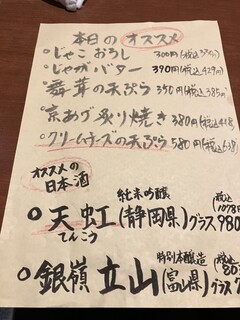 本日の オススメ
○じゃこ おろし 300円(税込330円)
○じゃがバター 390円(税込429円)
○舞茸の天ぷら 350円(税込385円)
○京あげ炙り焼き 380円(税込418
○クリームチーズの天ぷら 580円(税込638
オススメの
日本酒
純米吟醸 税込
○天虹(静岡県)グラス 980 1078
てんこう
特別本醸造 税込
○銀嶺立山(富山県)グラス